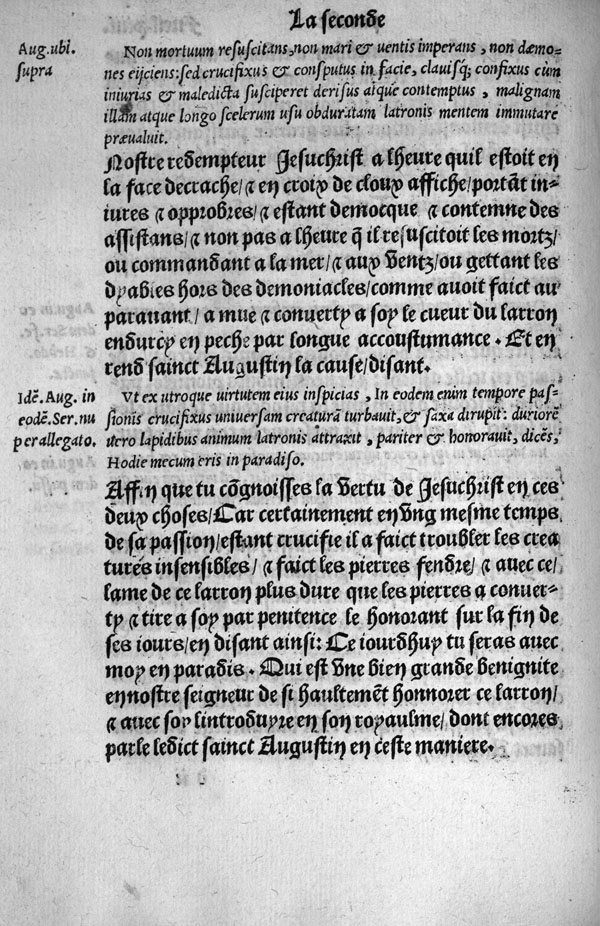 La seconde
Aug.ubi.
supra
Non mortuum resuscitans, non mari & ventis imperans, non dæmo-
nes eijciens: sed crucifixus & consputus in facie, clauisq; confixus cùm
iniurias & maledicta susciperet derisus atque contemptus, malignam
illam atque longo scelerum usu obduratam latronis mentem immutare
præualuit.
Nostre redempteur Jesuchrist a lheure quil estoit en
la face decrache/ & en croix de cloux affiche/ portãt in-
iures & opprobres/ & estant democque & contemne des
assistans/ & non pas a lheure q̃ il resuscitoit les mortz/
ou commandant a la mer/ & aux ventz/ ou gettant les
dyables hors des demoniacles/ comme auoit faict au
parauant/ a mue & conuerty a soy le cueur du larron
endurcy en peche par longue accoustumance. Et en
rend sainct Augustin la cause/ disant.
Idẽ. Aug. in
eodẽ. Ser. nu
per allegato.
Vt ex utroque virtutem eius inspicias, In eodem enim tempore pas-
sionis crucifixus uniuersam creaturã turbauit, & saxa dirupit: duriorẽ
uero lapidibus animum latronis attraxit, pariter & honorauit, dicẽs,
Hodie mecum eris in paradiso.
Affin que tu cõgnoisses la vertu de Jesuchrist en ces
deux choses/ Car certainement en vng mesme temps
de sa passion/ estant crucifie il a faict troubler les crea
tures insensibles/ & faict les pierres fendre/ & auec ce/
lame de ce larron plus dure que les pierres a conuer-
ty & tire a soy par penitence le honorant sur la fin de
ses iours/ en disant ainsi: Ce iourdhuy tu seras auec
moy en paradis. Qui est vne bien grande benignite
en nostre seigneur de si haultemẽt honnorer ce larron/
& auec soy lintroduyre en son royaulme/ dont encores
parle ledict sainct Augustin en ceste maniere.